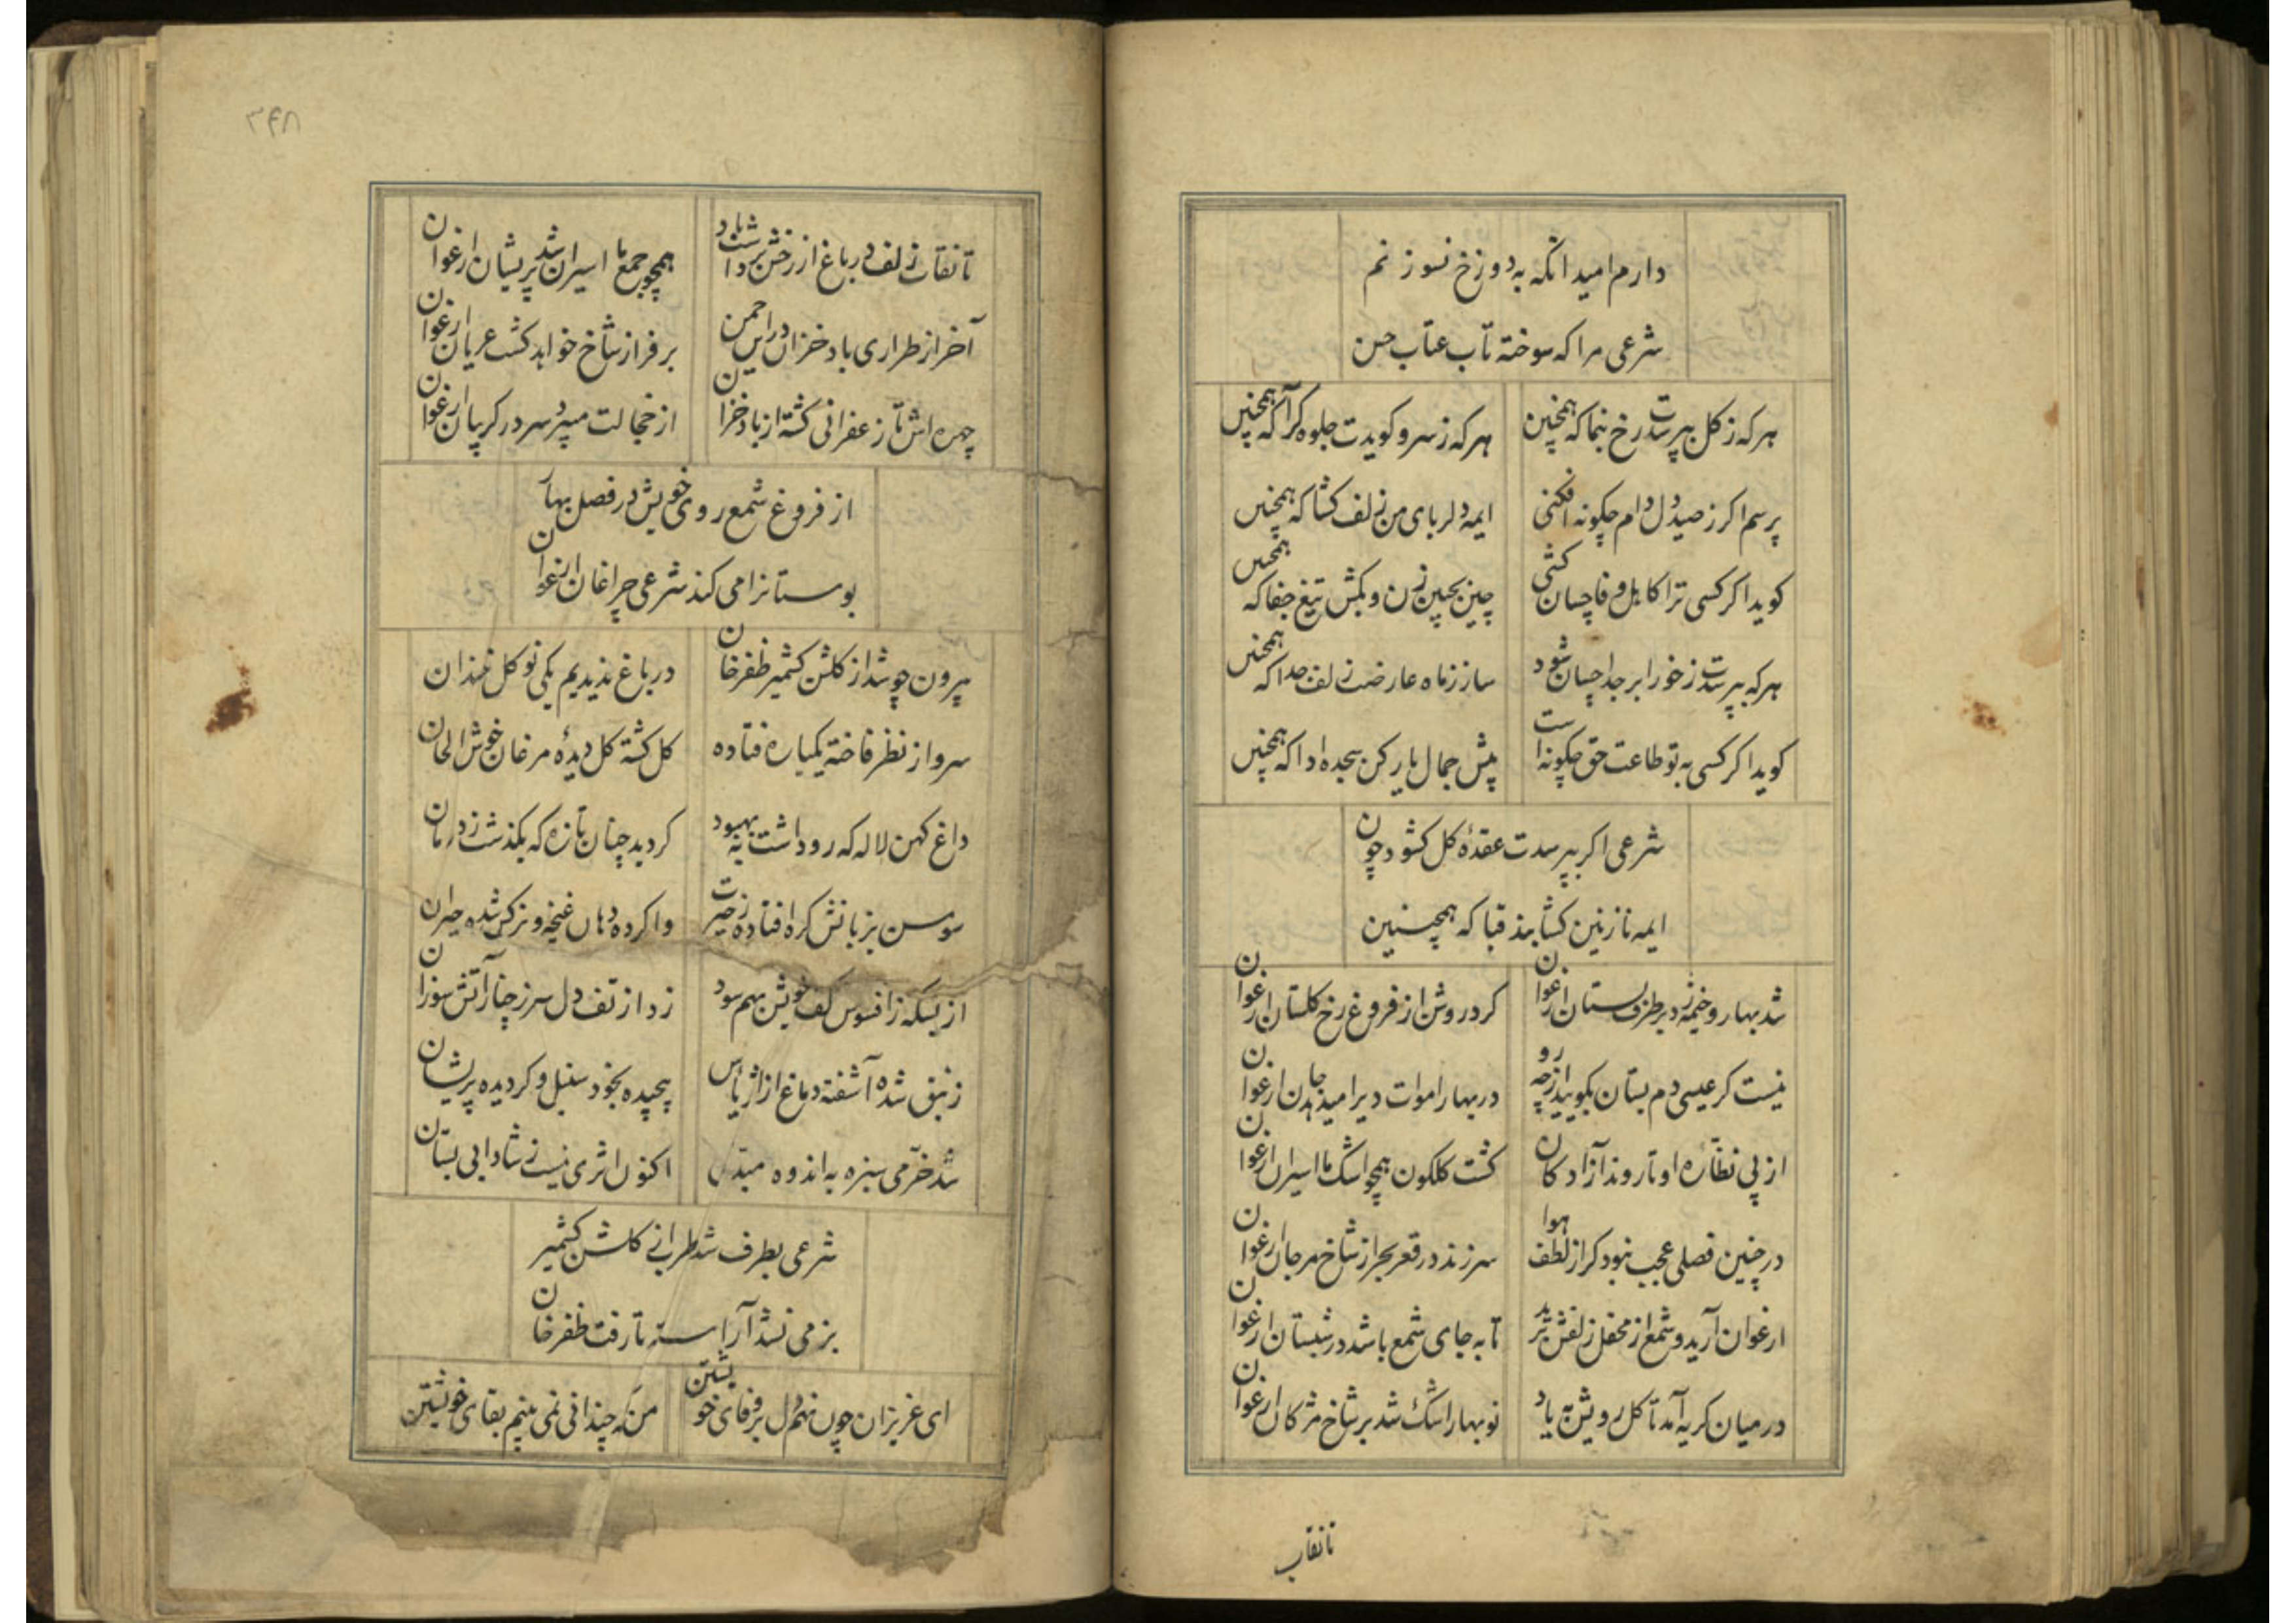 دارم امید آنکه به دوزخ نسوزنم
شرعی مرا که سوخته تاب عتاب حسن
هر که ز کل بپرسدت رخ بنما که همچنین
هر که ز سرو کویدت جلوه کرا که همچنین
پرسم اکر ز صید دل دام چکونه افکنی
ایمه دلربای من زلف کشا که همچنین
کوید اکر کسی ترا کاهل وفا چسان کشی
چین بجبین زن و بکش تیغ جفا که همچنین
هر که بپرسدت ز خور ابر جدا چسان شود
ساز ز ماه عارضت زلف جدا که همچنین
کوید اکر کسی به تو طاعت حق چکونه است
پیش جمال یار کن سجده ادا که همچنین
شرعی اکر بپرسدت عقدهٔ کل کشود چون
ایمه نازنین کشا بند قبا که همچنین
شد بهار و خیمه زد بر طرف بستان ارغوان
کرد روشن از فروغ رخ کلستان ارغوان
نیست کر عیسی دم بستان بکویید از چه رو
در بهار اموات دیرا میدهد جان ارغوان
از پی نظّاره او تا روند آزادکان
کشت کلکون همچو اشک ما اسیران ارغوان
در چنین فصلی عجب نبود کر از لطف هوا
سر زند در قعر بحر از شاخ مرجان ارغوان
ارغوان آرید و شمع از محفل زلفش برید
تا به جای شمع باشد در شبستان ارغوان
در میان کریه آمد تا کل رویش به یاد
نوبهار اشک شد بر شاخ مژکان ارغوان
تا نقاب
۳۴۸
تا نقاب زلف در باغ از رخش برداشت باد
همچو جمع ما اسیران شد پریشان ارغوان
آخر از طراری باد خزان در این چمن
بر فراز شاخ خواهد کشت عریان ارغوان
چهره اش تا زعفرانی کشته از باد خزان
از خجالت میبرد سر در کریبان ارغوان
از فروغ شمع روی خویش در فصل بهار
بوستانرا می کند شرعی چراغان ارغوان
بیرون چو شد از کلشن کشمیر ظفرخان
در باغ ندیدیم یکی نو کل خندان
سرو از نظر فاخته یکباره فتاده
کل کشته کل دیدهٔ مرغان خوش الحان
داغ کهن لاله که رو داشت به بهبود
کردید چنان تازه که بکذشت ز درمان
سوسن بزبانش کره افتاده ز حیرت
وا کرده دهان غنچه و نرکس شده حیران
از بسکه ز افسوس کف خویش بهم سود
زد از تف دل سر ز چنار آتش سوزان
زنبق شده آشفته دماغ از اثر یأس
پیچیده بخود سنبل و کردیده پریشان
شد خرّمی سبزه به اندوه مبدّل
اکنون اثری نیست ز شادابی بستان
شرعی بطرف شد طرب از کلشن کشمیر
بزمی نشد آراسته تا رفت ظفرخان
ای عزیزان چون نهم دل بر وفای خویشتن
من که چندانی نمی بینم بقای خویشتن